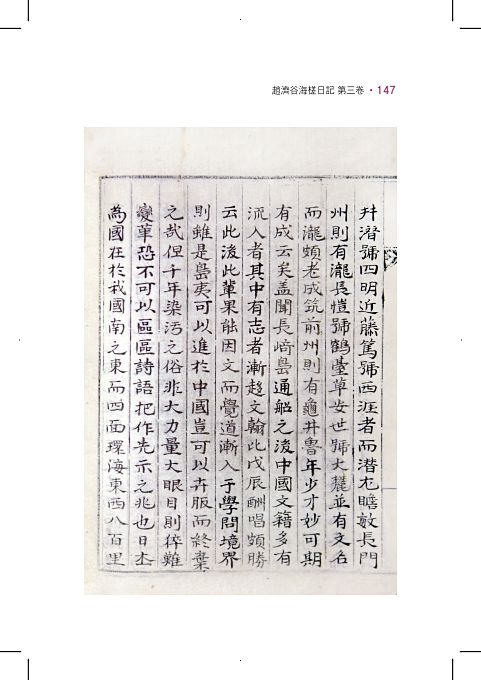 趙濟谷海槎日記 第三卷 • 147
井潛號四明近藤篤號西涯者而潛尤瞻敏長門
州則有瀧長愷號鶴臺草安世號大麓並有文名
而瀧頗老成筑前州則有龜井魯年少才妙可期
有成云矣盖聞長﨑島通舩之後中國文籍多有
流入者其中有志者漸趍文翰比戊辰酬唱頗勝
云此後此輩果能因文而覺道漸入于學問境界
則雖是島夷可以進於中國豈可以卉服而終棄
之哉但千年染汚之俗非大力量大眼目則猝難
變革恐不可以區區詩語把作先示之兆也日本
為國在於我國南之東而四面環海東西八百里